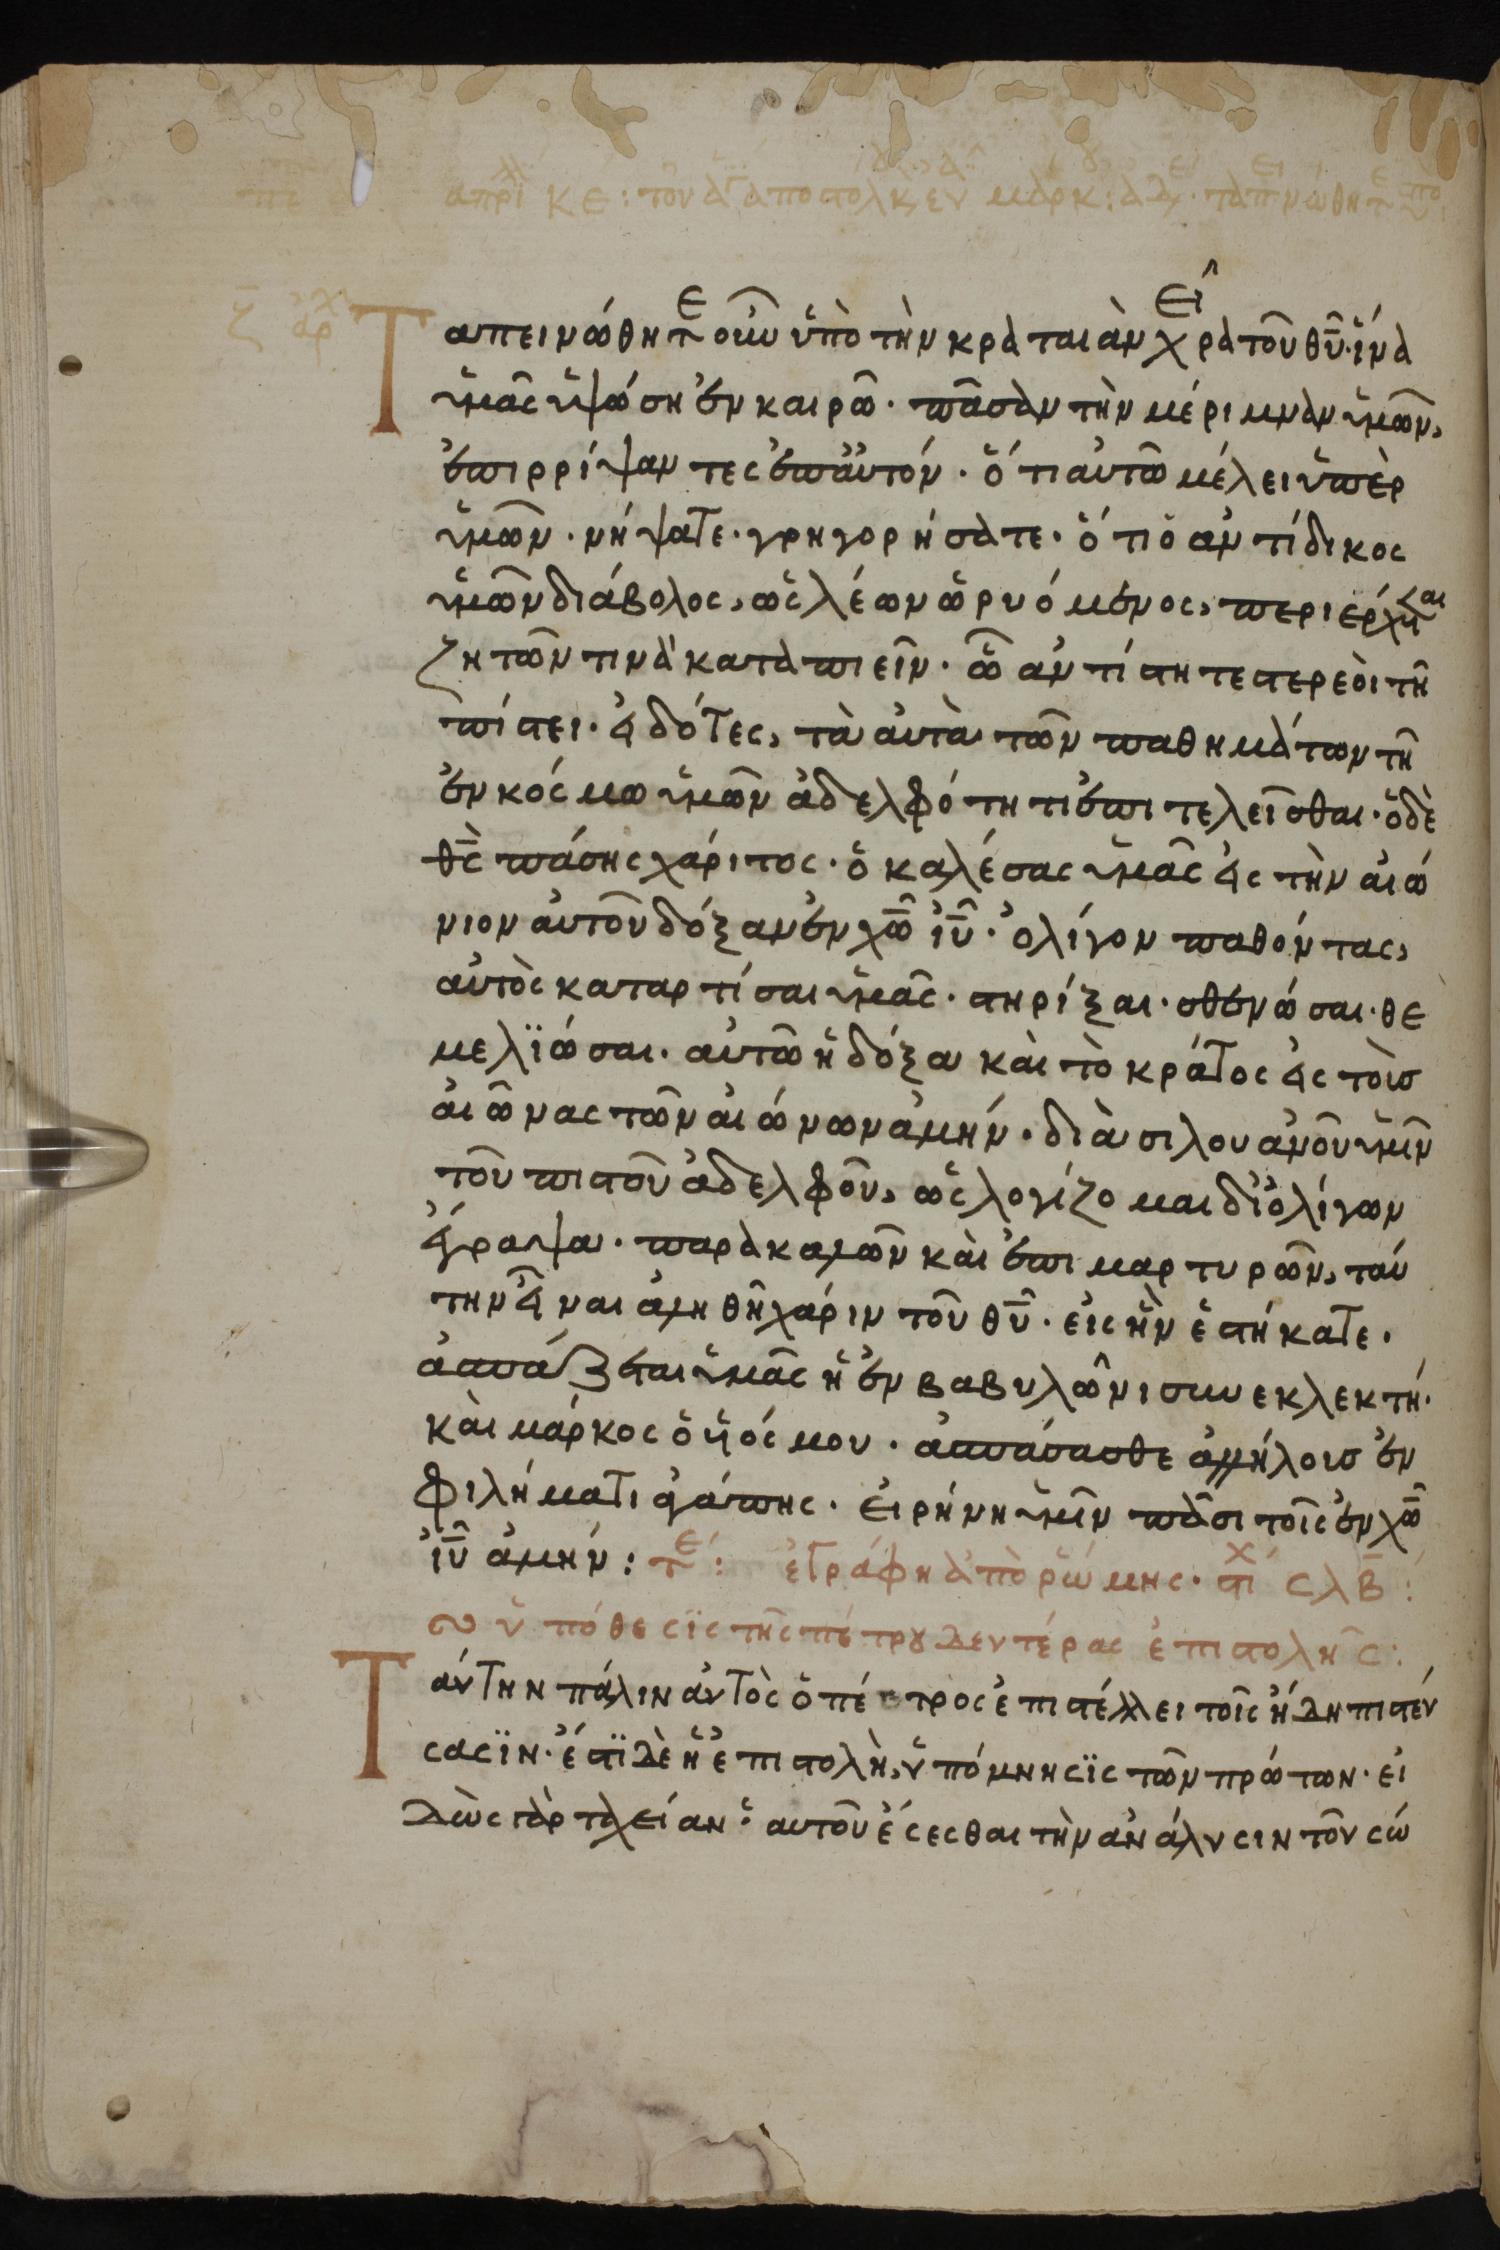 ἀπρι κε: τοῦ ἁγ ἀποστολ κ, εν μάρκ: ἀδ. ταπεινώθητε ὑπὸ
ζ ἀρχ
Ταπεινώθητε οὖν ὑπὸ τὴν κραταιὰν χεῖρα τοῦ θῦ· ἵνα
ὑμᾶς ὑψώση ἐν καιρῶ· πᾶσαν τὴν μέριμναν ὑμῶν,
ἐπιρρίψαντες ἐπ' αὐτόν· ὅτι αὐτῶ μέλει ὑπὲρ
ὑμῶν· νήψατε· γρηγορήσατε· ὅτι ὁ ἀντίδικος
ὑμῶν διάβολος, ὡς λέων ὠρυόμενος, περιέρχεται
ζητῶν τινὰ καταπιεῖν· ὧ ἀντίστητε στερεοὶ τῆ
πίστει· εἰδότες, τὰ αὐτὰ τῶν παθημάτων τῆ
ἐν κόσμω ὑμῶν ἀδελφότητι ἐπιτελεῖσθαι· ὁ δὲ
θς πάσης χάριτος· ὁ καλέσας ὑμᾶς εἰς τὴν αἰώ
νιον αὐτοῦ δόξαν ἐν χῶ ἰῦ· ὀλίγον παθόντας,
αὐτὸς καταρτίσαι ὑμᾶς· στηρίξαι· σθενώσαι· θε
μελϊώσαι· αὐτῶ ἡ δόξα καὶ τὸ κράτος εἰς τοὺς
αἰῶνας τῶν αἰώνων ἀμήν· διὰ σιλουανοῦ ὑμῖν
τοῦ πιστοῦ ἀδελφοῦ, ὡς λογίζομαι δι' ὀλίγων
ἔγραψα· παρακαλῶν καὶ ἐπιμαρτυρῶν, ταύ
την εἶναι ἀληθῆ χάριν τοῦ θῦ· εἰς ἣν ἑστήκατε·
ἀσπάζεται ὑμᾶς ἡ ἐν βαβυλῶνι συνεκλεκτή·
καὶ μάρκος ὁ ὑός μου· ἀσπάσασθε ἀλλήλους ἐν
φιλήματι ἀγάπης· εἰρήνη ὑμῖν πᾶσι τοῖς ἐν χῶ
ἰῦ ἀμήν: τε: ἐγράφη ἀπὸ ῥώμης· στίχ ςλβ:
ὑπόθεσϊς τῆς πέτρου δευτέρας ἐπιστολῆς:
Ταύτην πάλιν αὐτὸς ὁ πέτρος ἐπιστέλλει τοῖς ἤδη πιστεύ
σασϊν· ἔστϊ δὲ ἡ ἐπιστολὴ, ὑπόμνησϊς τῶν πρώτων· εἰ
δὼς γὰρ ταχείαν: αὐτοῦ ἔσεσθαι τὴν ἀνάλυσιν τοῦ σώ